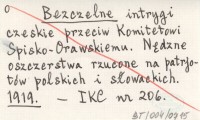 Bezczelne intrygi
czeskie przeciw Komitetowi
Spisko-Orawskiemu. Nędzne
oszczerstwa rzucone na patrjo-
tów polskich i słowackich.
1919. — IKC nr 206.
BT/004/0415